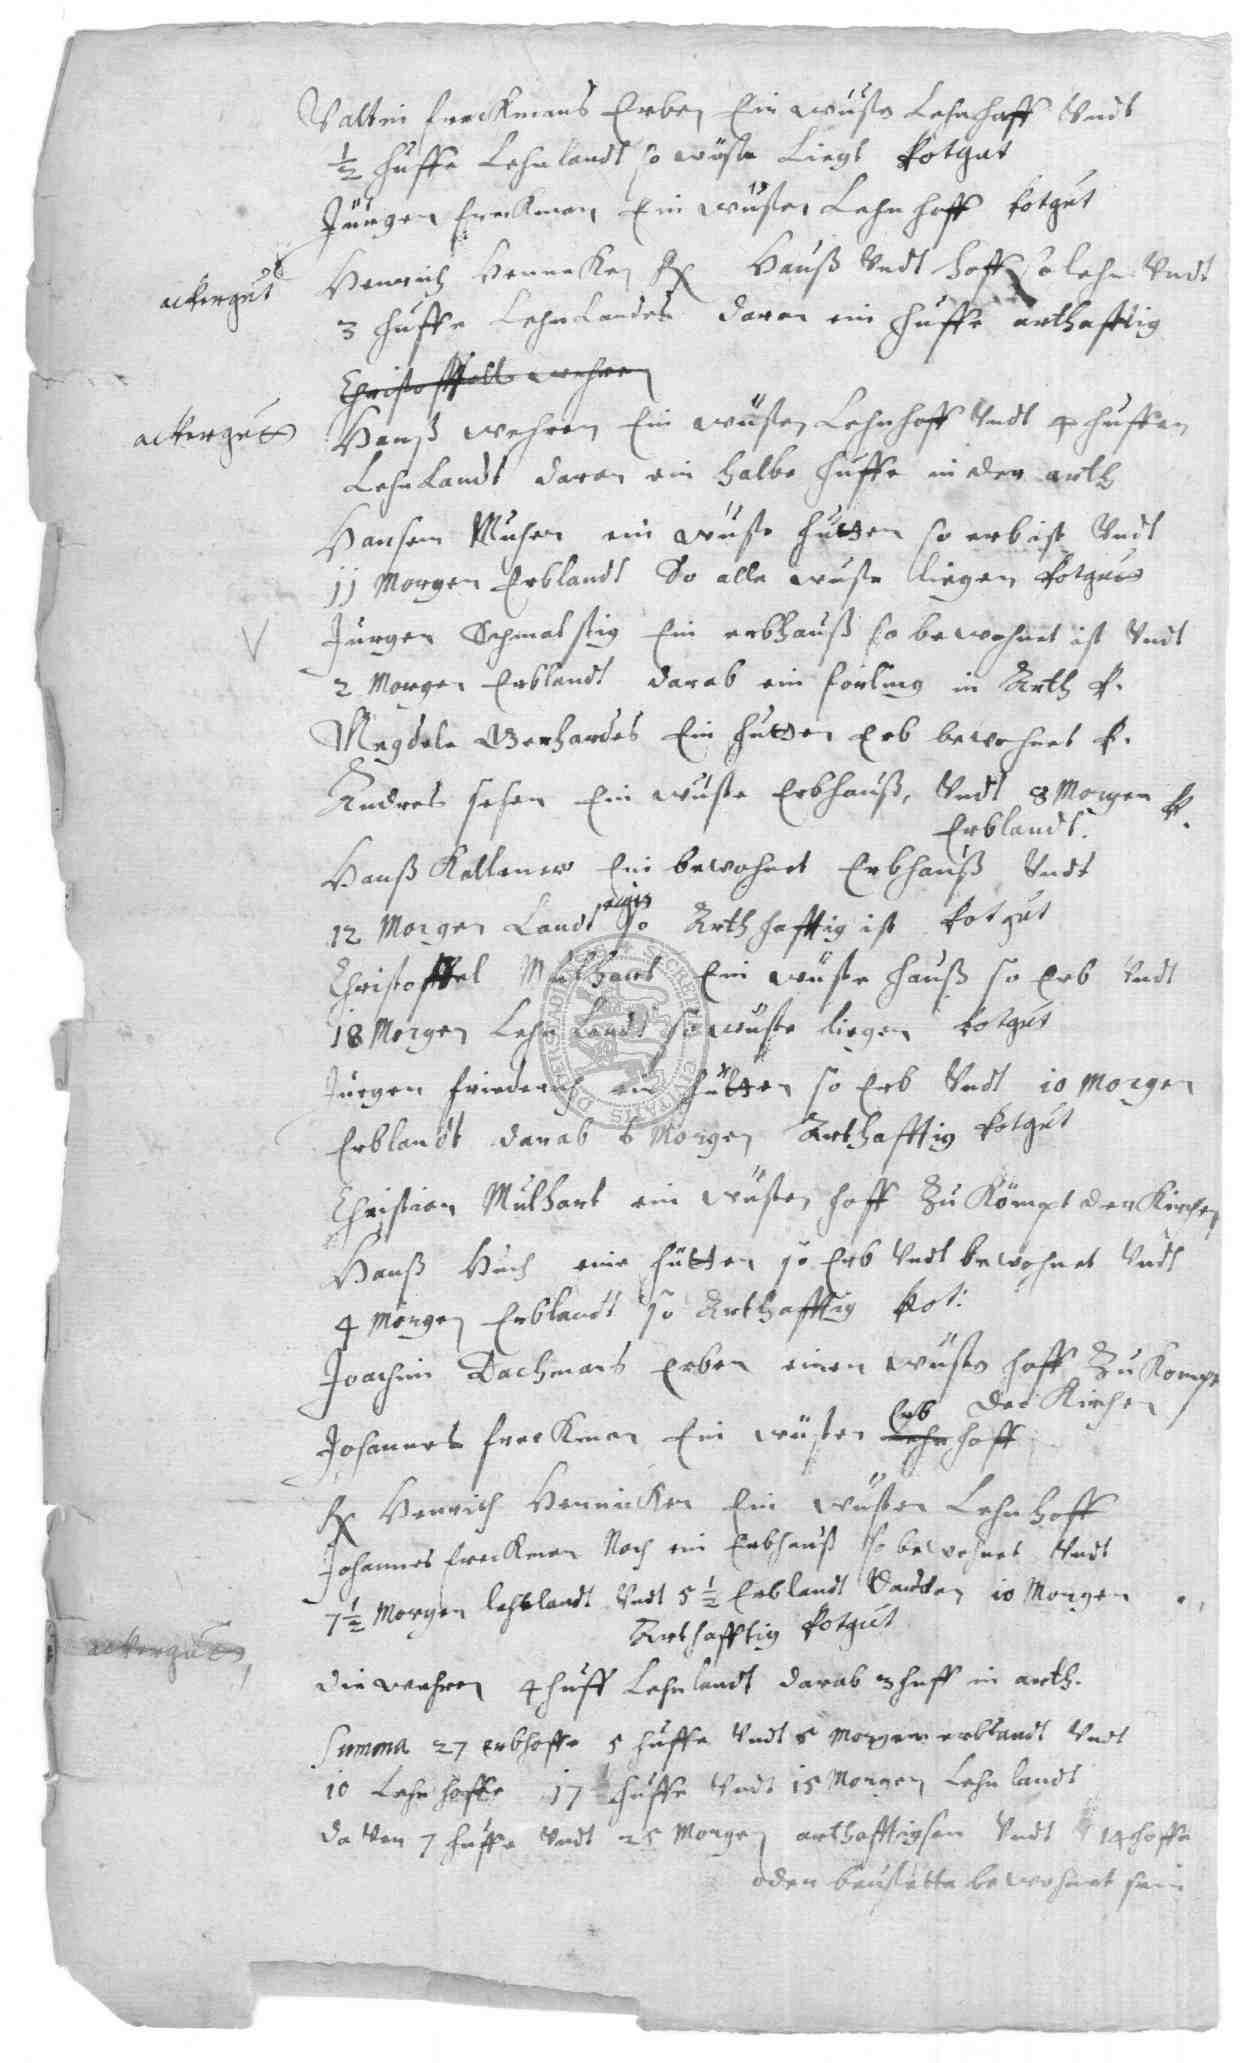 Valtin freckmans Erben Ein wüster Lehnhoff Vndt
½ huffe Lehnlandt so wöste Liegt kotgut
Jürgen freckman Ein wüsten Lehnhoff kotgut
ackergut Henrich Henneken Hauß Vndt hoff so lehn Vndt
3 huffe LehnLandes daran ein huffe arthafftig
Christoffell wehren
ackergut Hanß wehren Ein wüsten Lehnhoff Vndt 4 huffen
LehnLandt daran ein halbe huffe in der arth
Hansen Muhsen ein wüste hutten so erb ist Vndt
11 Morgen Erblandt So alle wuste liegen kotgut
Jurgen Schmalstig Ein erbhauß so bewohnet ist Vndt
2 Morgen Erblandt darab ein forling in Arth k.
Magdele Gerhardes Ein hutten Erb bewohnet k.
Andres sehsen Ein wuste Erbhauß, Vndt 8 Morgen k.
Erblandt.
Hanß Kellener Ein bewohnet Erbhauß Vndt
12 Morgen Landt so Arthhafftig ist kotgut
Christoffel Mulhart Ein wüste hauß so Erb Vndt
18 Morgen Lehn Landt so wuste liegen kotgut
Jürgen friederich ein hutten so Erb Vndt 10 Morgen
Erblandt darab 6 Morgen Arthafftig kotgut
Christian Mulhart ein wüsten hoff Zu Kömpt der Kirchen
Hanß Huch eine hütten so Erb Vndt bewohnet Vndt
4 Morgen Erblandt so Arthafftig kot:
Joachim Dachmans Erben einen wüsten hoff Zu Kompt
der Kirchen
Johannes freckman Ein wüsten Erb hoff
Henrich Hennicken Ein wüsten Lehnhoff
Johannes freckman Noch ein Erbhauß so bewohnet Vndt
7½ Morgen lehnlandt Vndt 5½ Erblandt Darvon 10 Morgen
Arthafftig kotgut
ackergut, die wehren 4 huff Lehnlandt darab 3 huff in arth.
Summa 27 erbhoffe 5 huffe Vndt 5 Morgen erblandt Vndt
10 Lehnhoffe 17 huffe Vndt 15 Morgen Lehnlandt
da Von 7 huffe Vndt 25 Morgen arthafftig sein Vndt 14 hoffe
oder baustette bewohnet sein